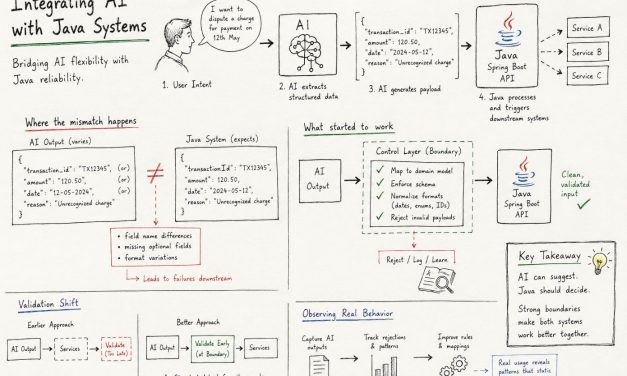 Integrating AI
with Java Systems
Bridging AI flexibility with
Java reliability.
I want to
dispute a charge
for payment on
12th May
1. User Intent
AI
2. AI extracts
structured data
{
"transaction_id": "TX12345",
"amount": 120.50,
"date": "2024-05-12",
"reason": "Unrecognized charge"
}
3. AI generates payload
Java
Spring Boot
API
4. Java processes and triggers
downstream systems
Service A
Service B
Service C
Where the mismatch happens
AI Output (varies)
{
"transaction_id": "TX12345", (or)
"amount": "120.50", (or)
"date": "12-05-2024", (or)
"reason": "Unrecognized charge"
}
≠
Java System (expects)
{
"transactionId": "TX12345",
"amount": 120.50,
"date": "2024-05-12",
"reason": "Unrecognized charge"
}
• field name differences
• missing optional fields
• format variations
Leads to failures downstream
What started to work
AI
Output
Control Layer (Boundary)
✓ Map to domain model
✓ Enforce schema
✓ Normalize formats
(dates, enums, IDs)
✓ Reject invalid payloads
Reject / Log / Learn
Java
Spring Boot
API
Clean,
validated
input
Key Takeaway
AI can suggest.
Java should decide.
Strong boundaries
make both systems
work better together.
Validation Shift
Earlier Approach
AI Output
Services
Validate
(Too Late)
Better Approach
AI Output
Validate Early
(at Boundary)
Services
Observing Real Behavior
Capture AI
outputs
Track rejections
& patterns
Improve rules
& mappings
Real usage reveals
patterns that static